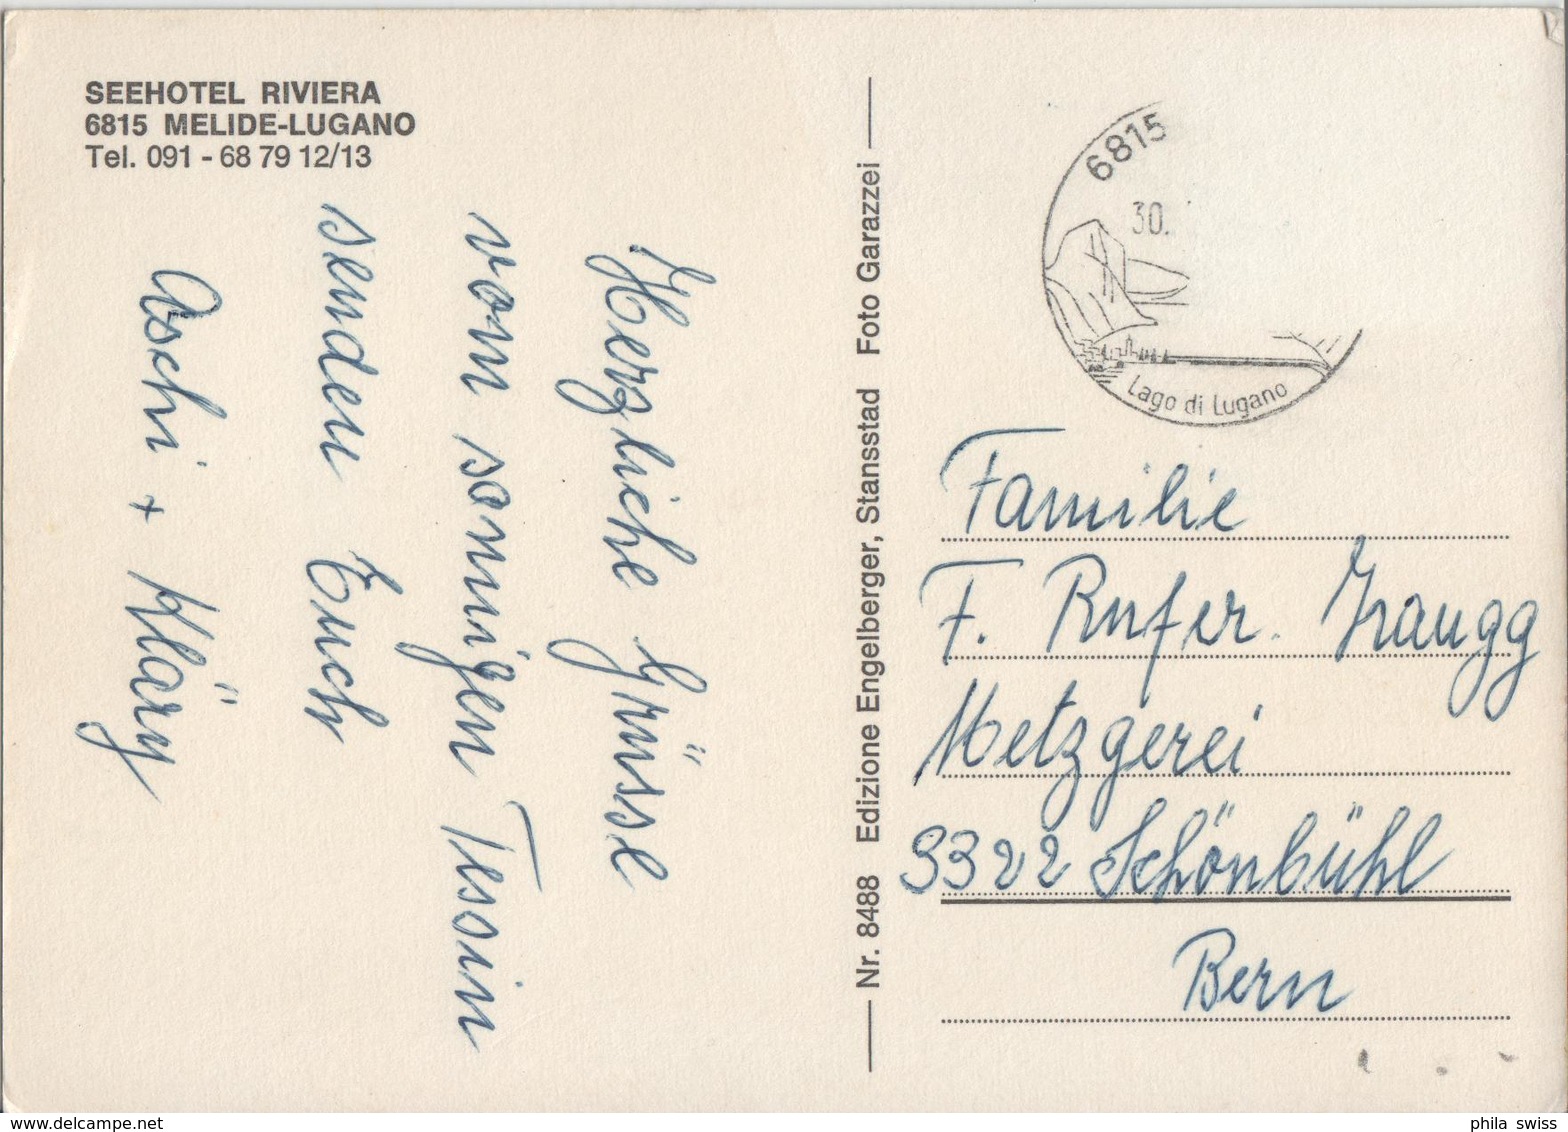 SEEHOTEL RIVIERA
6815 MELIDE-LUGANO
Tel. 091 - 68 79 12/13
Herzliche Grüsse
vom sonnigen Tessin
senden Euch
Aschi + Kläry
Nr. 8488 Edizione Engelberger, Stansstad Foto Garazzei
6815
30.
Lago di Lugano
Familie
F. Rufer. Zraugg
Metzgerei
3322 Schönbühl
Bern
delcampe.net
phila_swiss